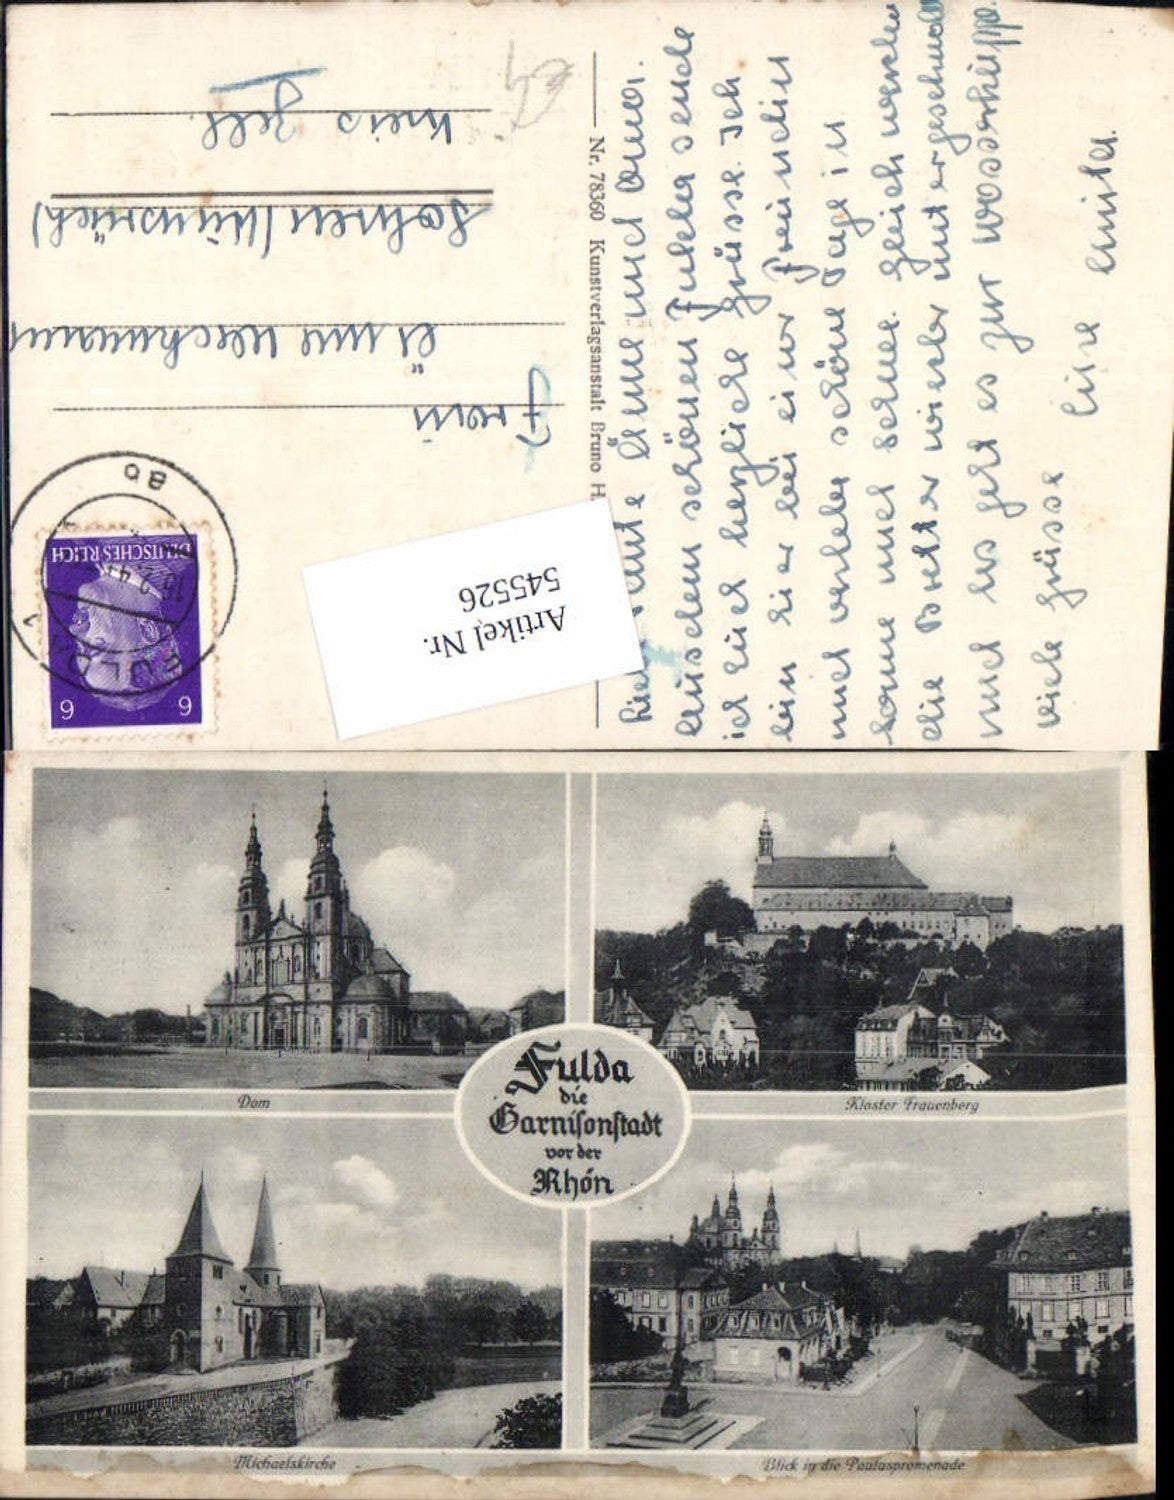 Liebe Tante Änne und Oma.
Aus dem schönen Fulda sende
ich Euch herzliche Grüsse. Ich
bin hier bei einer Freundin
und verlebe schöne Tage in
Sonne und Schnee. Gleich werden
die Bretter wieder untergeschnallt
und los geht es zur Wasserkuppe.
Viele Grüsse
Eure
Nr. 78360 Kunstverlagsanstalt Bruno H
Frau
Änne
Sohren (Hunsrück)
Kreis Zell.
DEUTSCHES REICH
6 6
FULDA
Artikel Nr.
545526
Fulda
die
Garnisonstadt
vor der
Rhön
Dom
Kloster Frauenberg
Michaelskirche
Blick in die Pauluspromenade